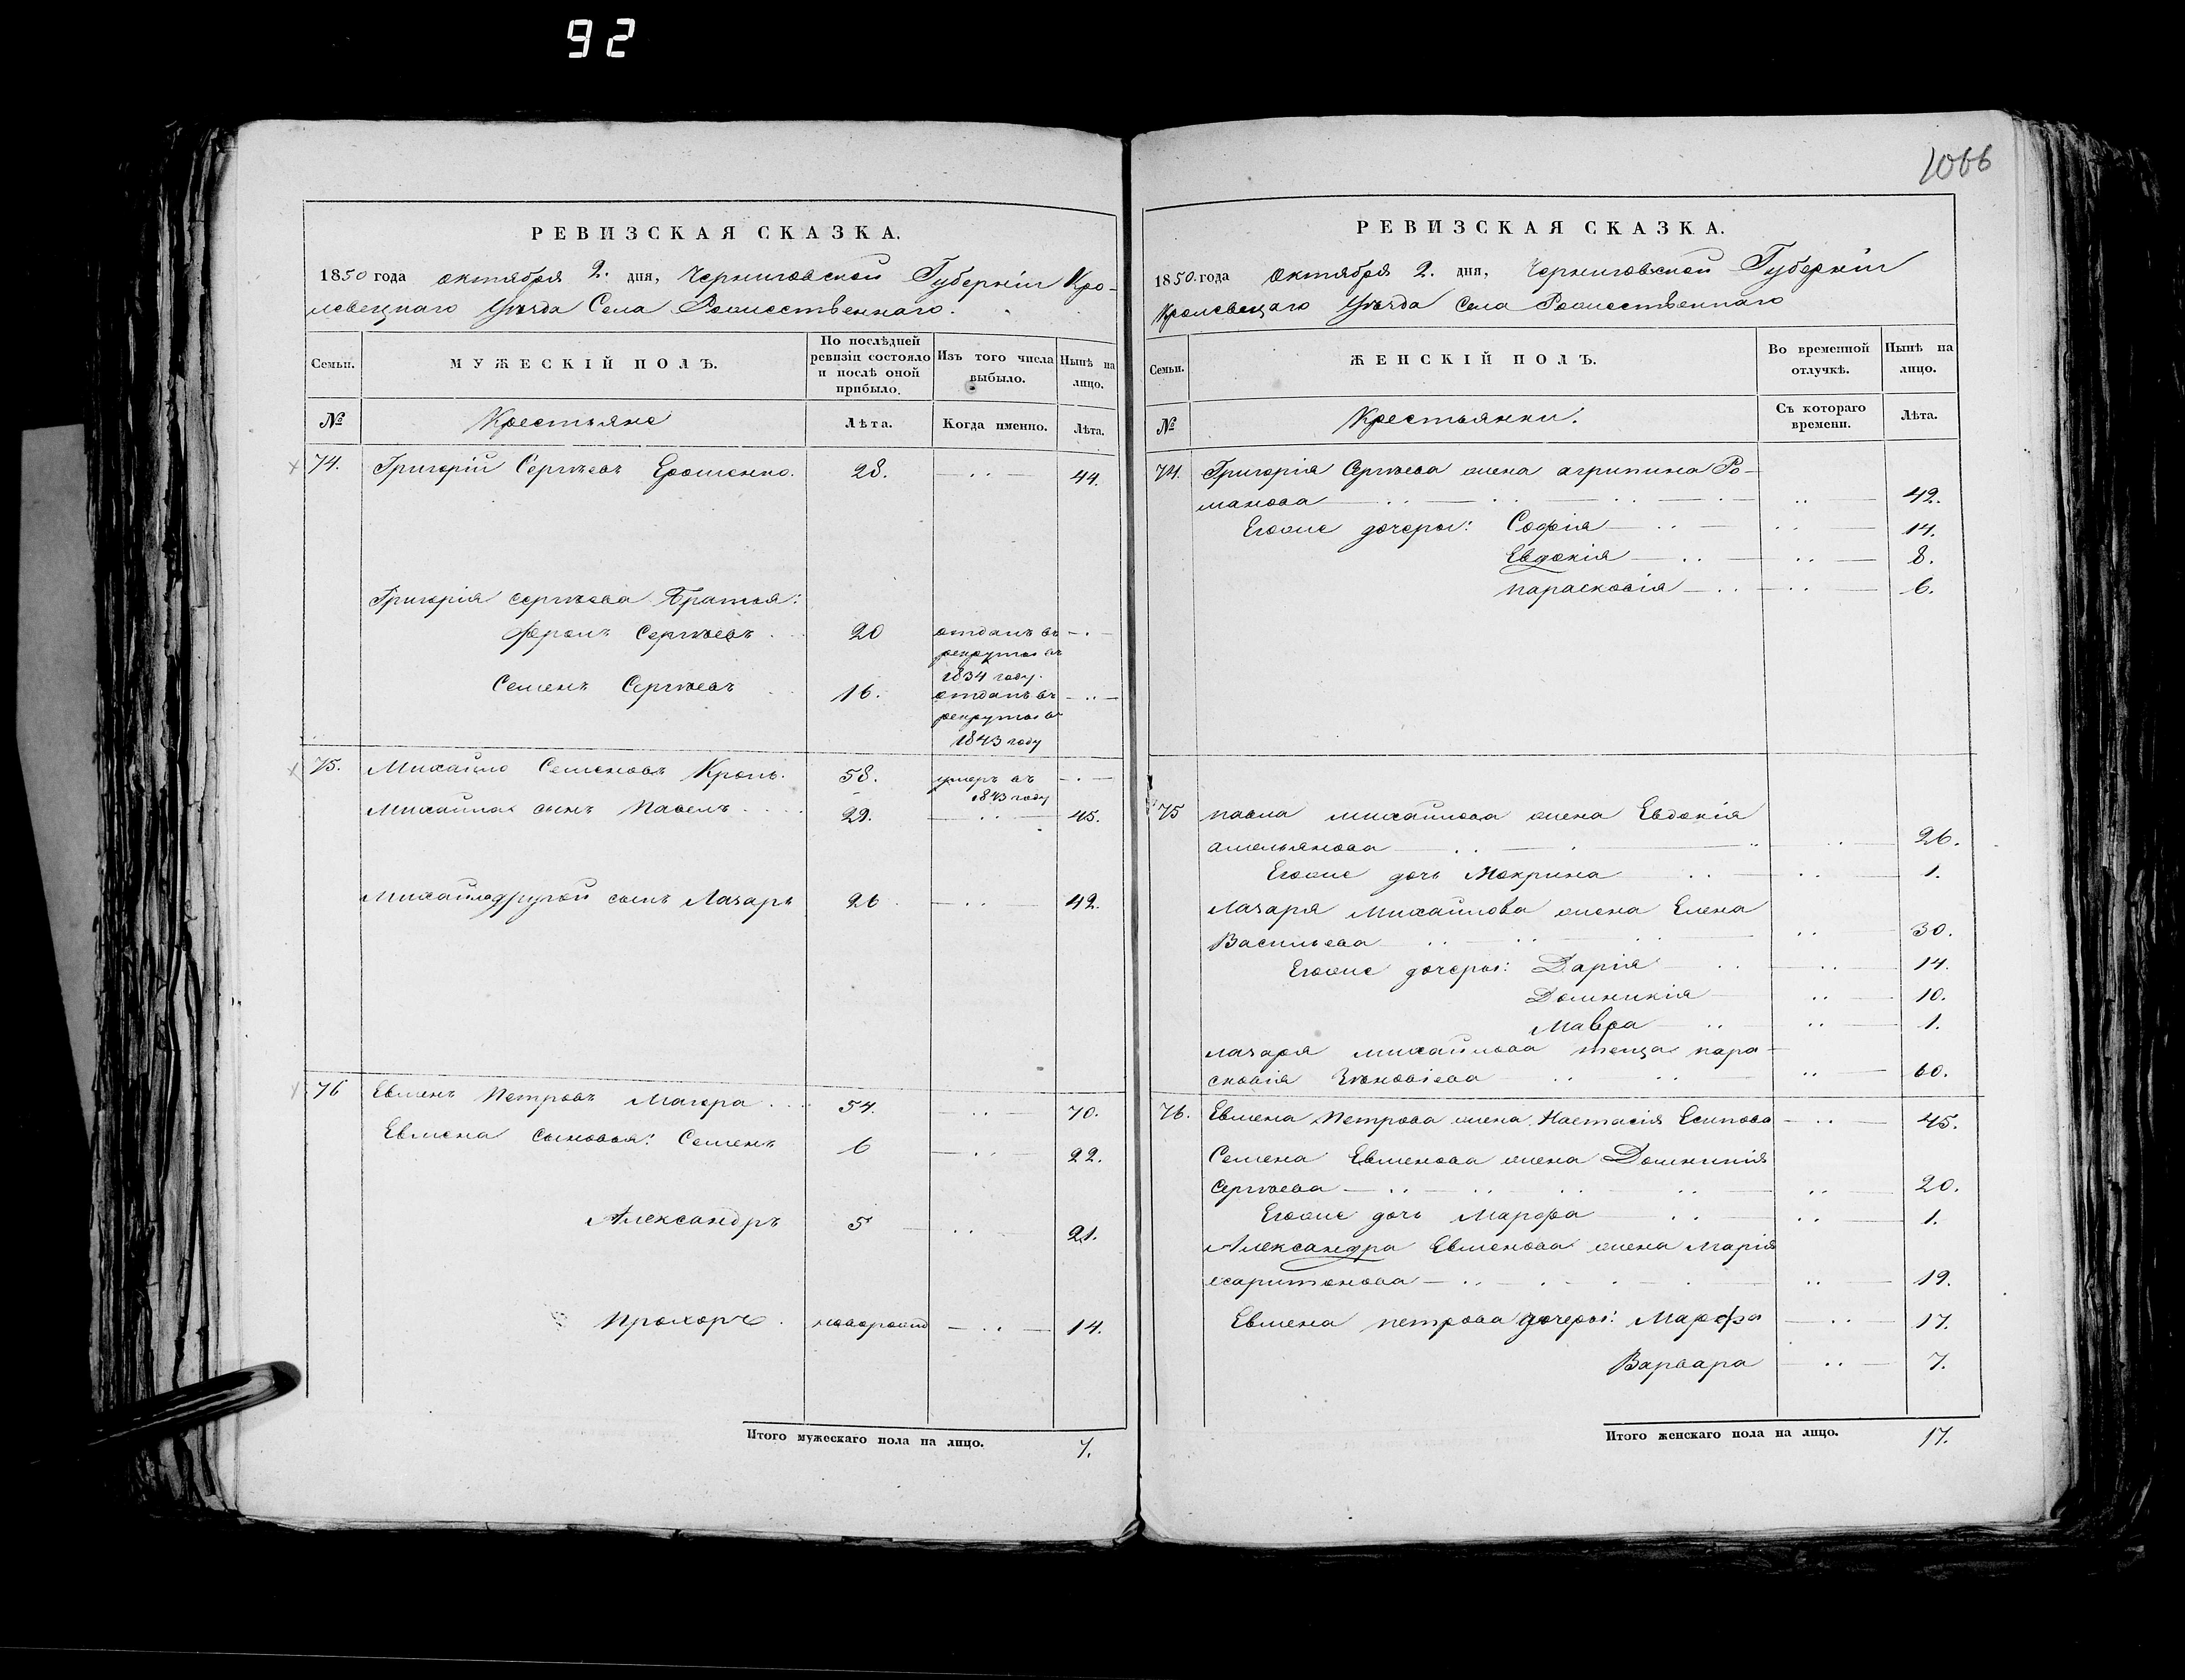 92
1066
РЕВИЗСКАЯ СКАЗКА.
1850 года октября 2. дня, Черниговской Губерніи Кро-
левецкаго Уѣзда Села Рожественнаго.
Семьи.
МУЖЕСКІЙ ПОЛЪ.
По послѣдней
ревизіи состояло
и послѣ оной
прибыло.
Изъ того числа
выбыло.
Нынѣ на
лицо.
№
Крестьяне
Лѣта.
Когда именно.
Лѣта.
74. Григорій Сергѣевъ Ерошенко. 28. 44.
Григорія Сергѣева Братья:
Фролъ Сергѣевъ 20 отданъ въ
рекруты въ
1834 году.
Семенъ Сергѣевъ 16. отданъ въ
рекруты въ
1843 году
75. Михайло Семеновъ 58. умеръ въ
1843 году
Михайла сынъ Павелъ 29. 45.
Михайла другой сынъ Лазарь 26 42.
76 Евменъ Петровъ Магора 54. 70.
Евмена сыновья: Семенъ 6 22.
Александръ 5 21.
Прохоръ новорожд 14.
Итого мужескаго пола на лицо. 7.
РЕВИЗСКАЯ СКАЗКА.
1850. года Октября 2. дня, Черниговской Губерніи
Кролевецкаго Уѣзда Села Рожественнаго
Семьи.
ЖЕНСКІЙ ПОЛЪ.
Во временной
отлучкѣ.
Нынѣ на
лицо.
№
Крестьянки.
Съ котораго
времени.
Лѣта.
74. Григорія Сергѣева жена агрипина Ро-
манова 42.
Егоже дочеры: Софія 14.
Евдокія 8.
парасковія 6.
75 павла михайлова жена Евдокія
амельянова 26.
Егоже дочь Макрина 1.
Лазаря Михайлова жена Елена
Васильева 30.
Егоже дочеры: Дарія 14.
Домникія 10.
Мавра 1.
лазаря михайлова теща пара-
сковія Зѣновіева 60.
76. Евмена Петрова жена Настасія Есипова 45.
Семена Евменова жена Домникія
Сергѣева 20.
Егоже дочь Марфа 1.
Александра Евменова жена Марія
харитонова 19.
Евмена петрова дочеры: Марфа 17.
Варвара 7.
Итого женскаго пола на лицо. 17.